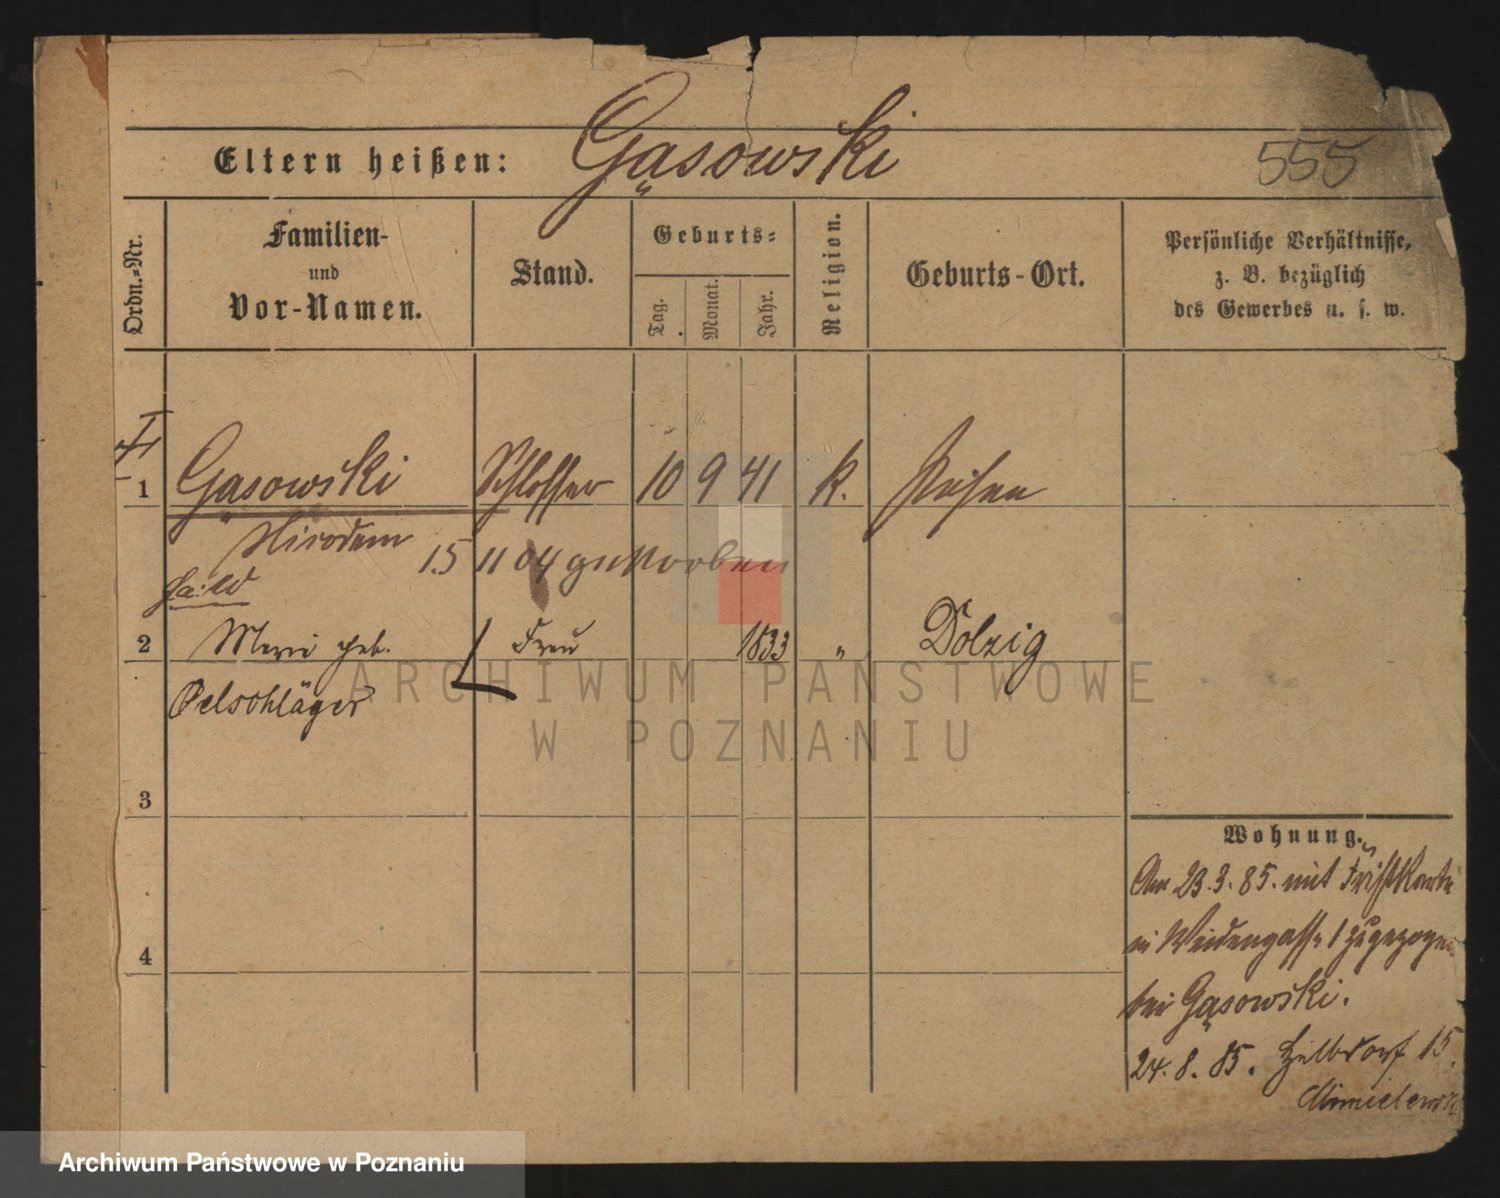 Eltern heißen: Gąsowski 555
Ordn.-Nr.
Familien-
und
Vor-Namen.
Stand.
Geburts-
Tag.
Monat.
Jahr.
Religion.
Geburts-Ort.
Persönliche Verhältnisse,
z. B. bezüglich
des Gewerbes u. s. w.
1 Gąsowski Schlosser 10 9 41 k. Reisen
15 11 04 gestorben
2 geb. Frau 1833 " Dolzig
Oelschläger
3
4
Wohnung.
Am 23.3.85. mit
in Weidengasse 1 zugezogen
bei Gąsowski.
24.8.85. 15.
ARCHIWUM PAŃSTWOWE
W POZNANIU
Archiwum Państwowe w Poznaniu